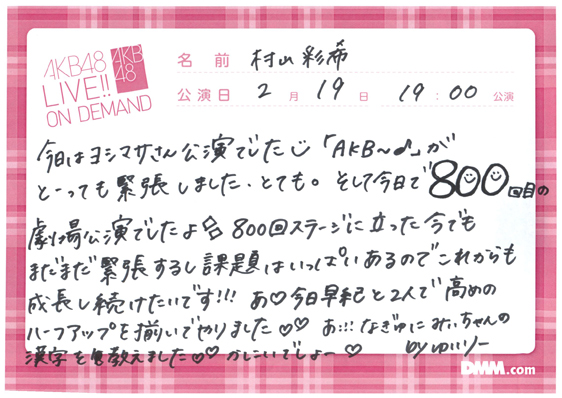 AKB48
LIVE!!
ON DEMAND
AKB
48
名前 村山彩希
公演日 2月19日 19:00公演
今日はヨシマサさん公演でした「AKB~♪」が
とーっても緊張しました、とても。そして今日で800回目の
劇場公演でしたよ 800回ステージに立った今でも
まだまだ緊張するし課題はいっぱいあるのでこれからも
成長し続けたいです!!! あ♡今日早紀と2人で高めの
ハーフアップを揃いでやりました♡♡ あ!!! なぎゅにみぃちゃんの
漢字を教えました♡♡ かしこいでしょー♡ byゆいりー
DMM.com